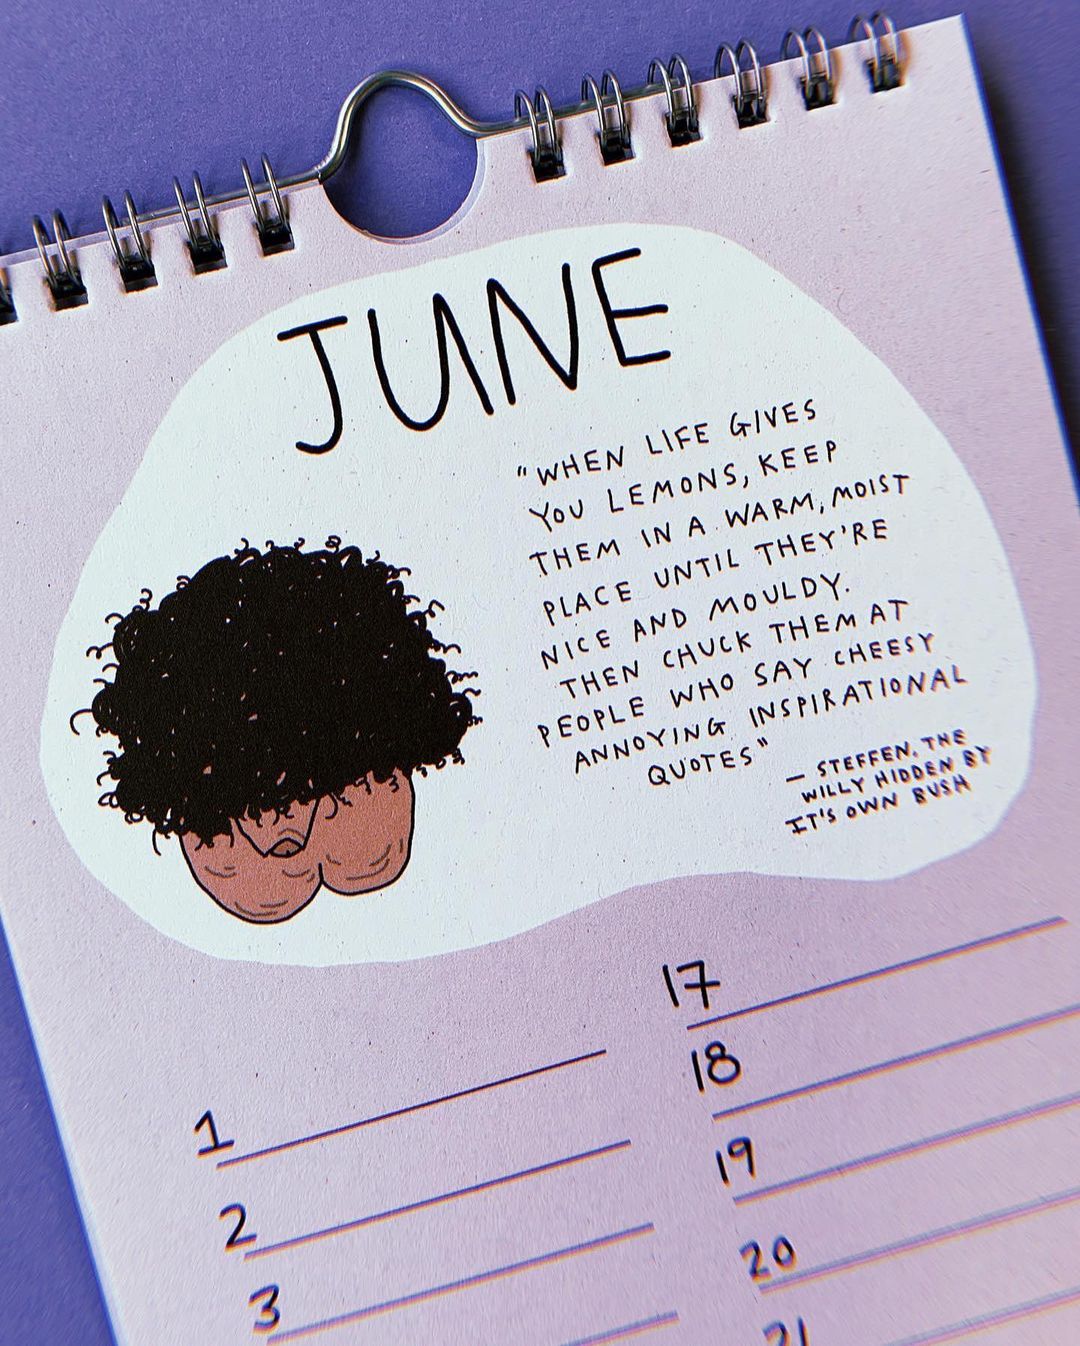 JUNE
"WHEN LIFE GIVES
YOU LEMONS, KEEP
THEM IN A WARM, MOIST
PLACE UNTIL THEY'RE
NICE AND MOULDY.
THEN CHUCK THEM AT
PEOPLE WHO SAY CHEESY
ANNOYING INSPIRATIONAL
QUOTES"
— STEFFEN. THE
WILLY HIDDEN BY
IT'S OWN BUSH
1
2
3
17
18
19
20
21